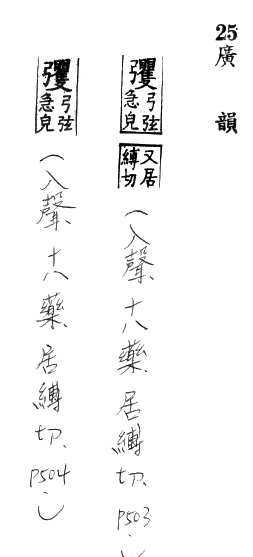 25 廣韻
彏弓弦急皃又居縛切(入聲、十八藥、居縛切、P503)
彏弓弦急皃(入聲、十八藥、居縛切、P504)